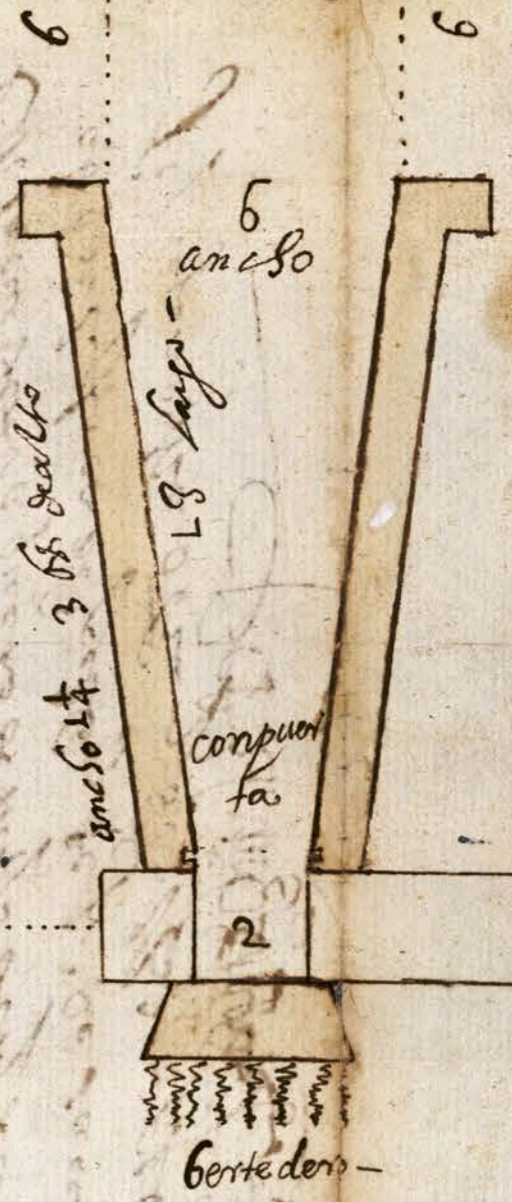 6
6
6
ancho
13 largo -
ancho 1 1/4 3 de alto
conpuer
ta
2
Bertedero -